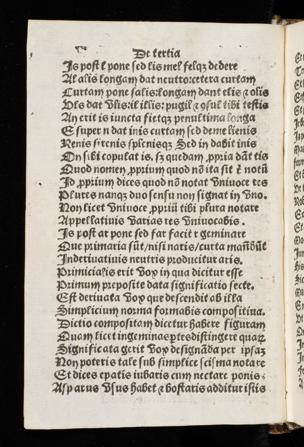 De tertia
Is post l pone sed lis mel felqꝫ dedere
Al alis longam dat neutro: cetera curtam
Curtam pone salis: longam dant elis ⁊ olis
Vls dat vlis: il ilis: pugil ⁊ ꝯsul tibi testis
An erit is iuncta fietqꝫ penultima longa
E super n dat inis curtam sed deme lienis
Renis sirenis splenisqꝫ Sed in dabit inis
On sibi copulat is. sꝫ quedam ꝓpria dāt tis
Quod nomen ꝓprium quod nō ita sit ē notū
Id ꝓprium dices quod nō notat vniuoce res
Plures namqꝫ duo sensu non signat in vno.
Non licet vniuoce ꝓpriū tibi plura notare
Appellatiuis varias res vniuocabis.
Is post ar pone sed far facit r geminare
Que primaria sūt / nisi natis / curta
Inderiuatiuis neutris producitur aris.
Primicia?is erit vox in qua dicitur esse
Primum preposite data significatio secte.
Est deriuata vox que descendit ab illa
Simplicium norma formabis compositiua.
Dictio compositam dicetur habere figuram
Quam licet ingeminae ptes distingere quaꝫ.
Significata gerit vox designāda per ipsas
Non poteris tale sub simplice scisma notare
Et dices epatis iubaris cum nectare ponis.
Asp arus vsus habet ⁊ bostaris additur istis